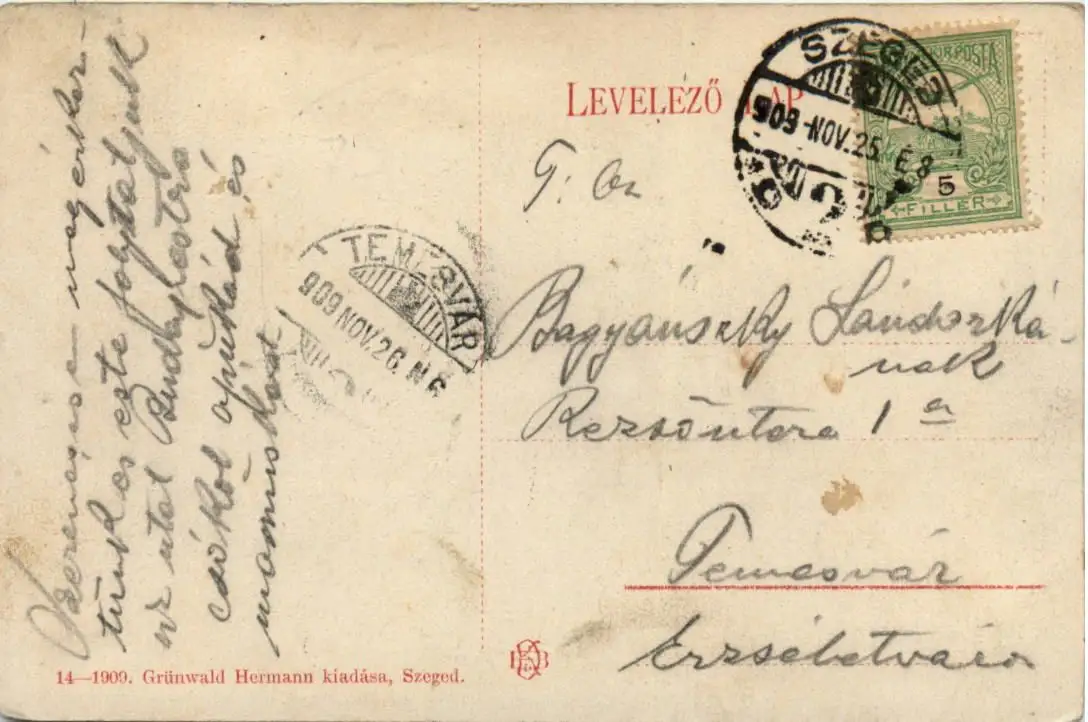 LEVELEZŐ LAP
SZEGED
909 NOV. 25. É 8
MAGYAR KIR. POSTA
5
FILLER
TEMESVÁR
909 NOV. 26. N 6
T: Cz
Bagyánszky Sándorká-
nak
Rezsőutca 1 a
Temesvár
Erzsébetváros
Szerencsésen megérkez-
tünk és este folytatjuk
az utat Budapestre
csókol apukád és
mamuskád
14—1909. Grünwald Hermann kiadása, Szeged.